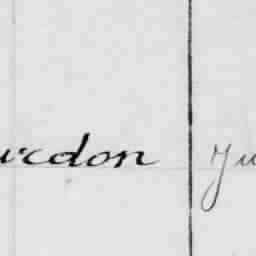 urdon Ju